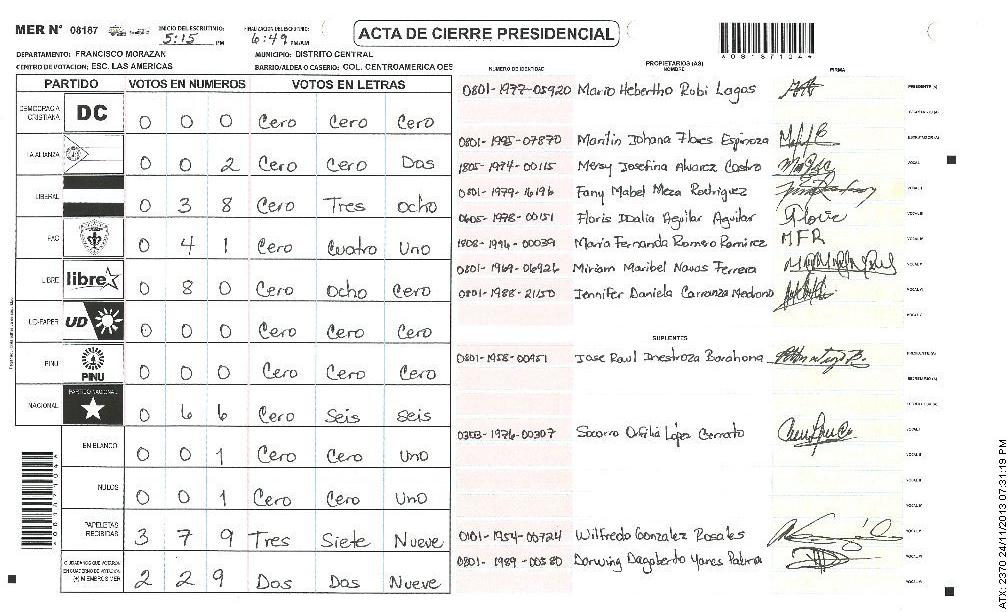 MER N° 08187
INICIO DEL ESCRUTINIO: 5:15 PM
FINALIZACION DEL ESCRUTINIO: 6:49 PM/AM
ACTA DE CIERRE PRESIDENCIAL
*08187104*
DEPARTAMENTO: FRANCISCO MORAZAN
MUNICIPIO: DISTRITO CENTRAL
CENTRO DE VOTACION: ESC. LAS AMERICAS
BARRIO/ALDEA O CASERIO: COL. CENTROAMERICA OES
PARTIDO VOTOS EN NUMEROS VOTOS EN LETRAS
DEMOCRACIA CRISTIANA DC 0 0 0 Cero Cero Cero
LA ALIANZA 0 0 2 Cero Cero Dos
LIBERAL 0 3 8 Cero Tres ocho
PAC 0 4 1 Cero Cuatro Uno
LIBRE libre 0 8 0 Cero Ocho Cero
UD-FAPER UD 0 0 0 Cero Cero Cero
PINU PINU 0 0 0 Cero Cero Cero
NACIONAL PARTIDO NACIONAL 0 6 6 Cero Seis seis
EN BLANCO 0 0 1 Cero Cero uno
NULOS 0 0 1 Cero Cero Uno
PAPELETAS RECIBIDAS 3 7 9 Tres Siete Nueve
CIUDADANOS QUE VOTARON EN CUADERNO DE VOTACION (+) MIEMBROS MER 2 2 9 Dos Dos Nueve
NUMERO DE IDENTIDAD PROPIETARIOS (AS) NOMBRE FIRMA
0801-1977-05920 Mario Hebertho Rubi Lagos PRESIDENTE (A)
0801-1995-07870 Marilin Johana Flores Espinoza
1805-1974-00115 Mersy Josefina Alvarez Castro
0801-1979-16196 Fany Mabel Meza Rodriguez
0605-1978-00151 Floris Idalia Aguilar Aguilar
1808-1994-00039 Maria Fernanda Romero Ramirez MFR
0801-1969-06926 Miriam Maribel Navas Ferrera
0801-1988-21150 Jennifer Daniela Carranza Medrano
SUPLENTES
0801-1958-00951 Jose Raul Inestroza Barahona PRESIDENTE (A)
0303-1976-00307 Socorro Orfilia López Cerrato
0101-1954-00724 Wilfredo Gonzalez Rosales
0801-1989-00580 Darwing Dagoberto Yanes Palma
ATX: 2370 24/11/2013 07:31:19 PM